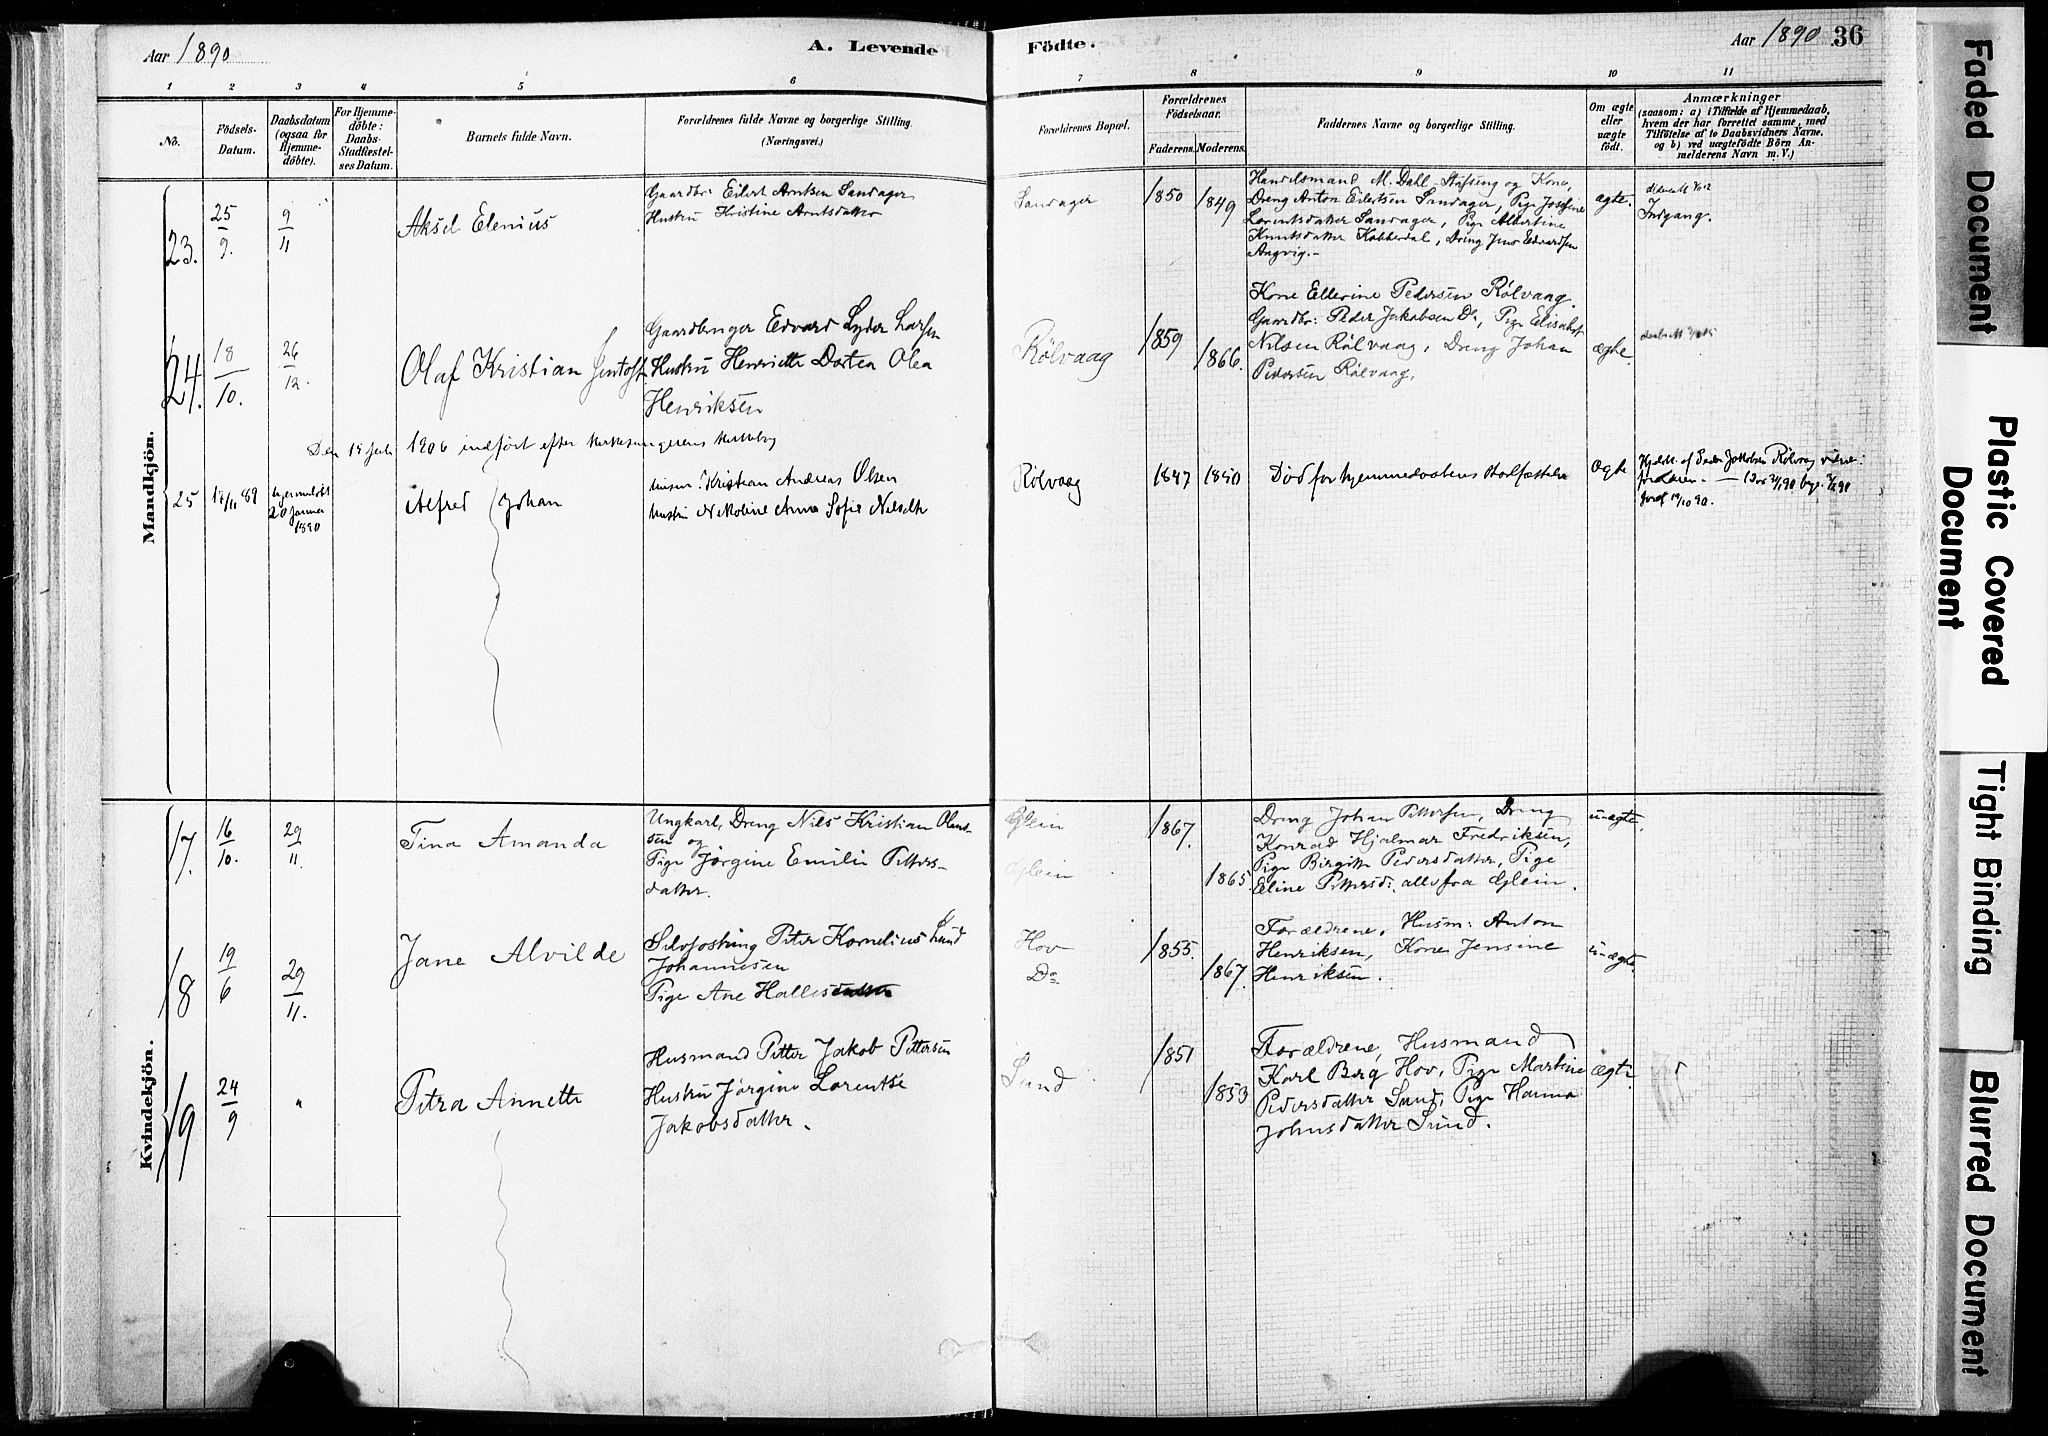 Aar 1890
A. Levende
Födte.
Aar 1890
36
1 2 3 4 5 6 7 8 9 10 11
No.
Födsels-
Datum.
Daabsdatum
(ogsaa for
Hjemme-
döbte).
For Hjemme-
döbte:
Daabs-
Stadfæstel-
ses Datum.
Barnets fulde Navn.
Forældrenes fulde Navne og borgerlige Stilling.
(Næringsvei.)
Forældrenes Bopæl.
Forældrenes
Födselsaar.
Faderens. Moderens.
Faddernes Navne og borgerlige Stilling.
Om ægte
eller
uægte
født.
Anmærkninger
(saasom: a) i Tilfælde af Hjemmedaab,
hvem der har forrettet samme, med
Tilføielse af to Daabsvidners Navne,
og b) ved uægtefödte Börn An-
melderens Navn m. V.)
Mandkjön.
23.
25/9.
9/11
Aksel Elenius
Gaardbr: Eilert Arntsen Sandager
Hustru Kristine Arntsdatter
Sandager
1850
1849
Handelsmand M. Dahl og Kone,
Dreng Anton Eilertsen Sandager, Pige Josefine
Lorentsdatter Sandager, Pige Albertine
Knutsdatter Kobberdal, Dreng Jens Edvardsen
Angvig.-
ægte.
Indgang.
24.
18/10.
26/12.
Olaf Kristian Jentoft
Gaardbruger Edvard Lyder Larsen
Hustru Henriette Dortea Olea
Henriksen
Rølvaag
1859
1866.
Kone Ellerine Pedersen Rølvaag.
Gaardbr: Peder Jakobsen Do, Pige Elisabet
Nilsen Rølvaag, Dreng Johan
Pedersen Rølvaag.
ægte.
Den 1906 indført efter
25
89
hjemmedøbt
20 januar
1890
Alfred Johan
Kristian Andreas Olsen
Hustru Nikoline Anna Sofie Nilsdtr
Rølvaag
1847
1850
Død før hjemmedaabens stadfæstelse
ægte
Hjdøbt af Peder Jakobsen Rølvaag
forældrene.
Kvindekjön.
17.
16/10.
29/11.
Tina Amanda
Ungkarl, Dreng Nils Kristian Olaus-
sen og
Pige Jørgine Emilie Petters-
datter.
Glein
Glein
1867.
1865.
Dreng Johan Pettersen, Dreng
Konrad Hjalmar Fredriksen,
Pige Birgitte Pedersdatter, Pige
Eline Pettersd: alle fra Glein.
uægte.
18
19/6
29/11.
Jane Alvilde
Selvfostring Peter Kornelius Lund
Johannesen
Pige Ane Hallesdatter
Hov
Do
1855.
1867.
Forældrene, Husm: Anton
Henriksen, Kone Jensine
Henriksen.
uægte.
19
24/9
"
Petra Annette
Husmand Petter Jakob Pettersen
Hustru Jørgine Lorentse
Jakobsdatter.
Sund
1851
1853
Forældrene, Husmand
Karl Berg Hov, Pige Martine
Pedersdatter Sund, Pige Hanna
Johnsdatter Sund.
ægte.
Faded Document
Plastic Covered
Document
Tight Binding
Blurred Document